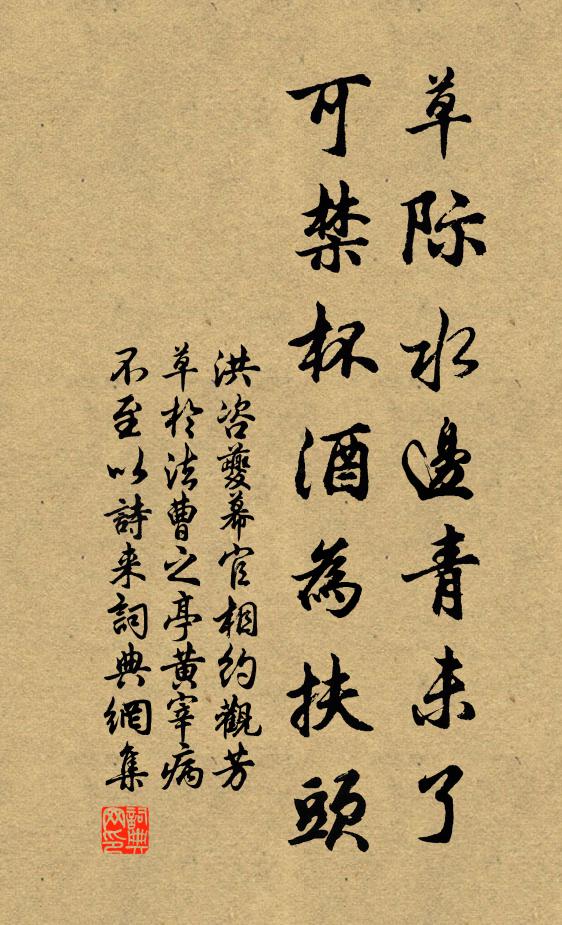 草际水邊青未了
可禁杯酒為扶頭
洪咨夔幕官相約觀芳
草於法曹之亭黄宰病
不至以詩来詞典網集
詞典网印